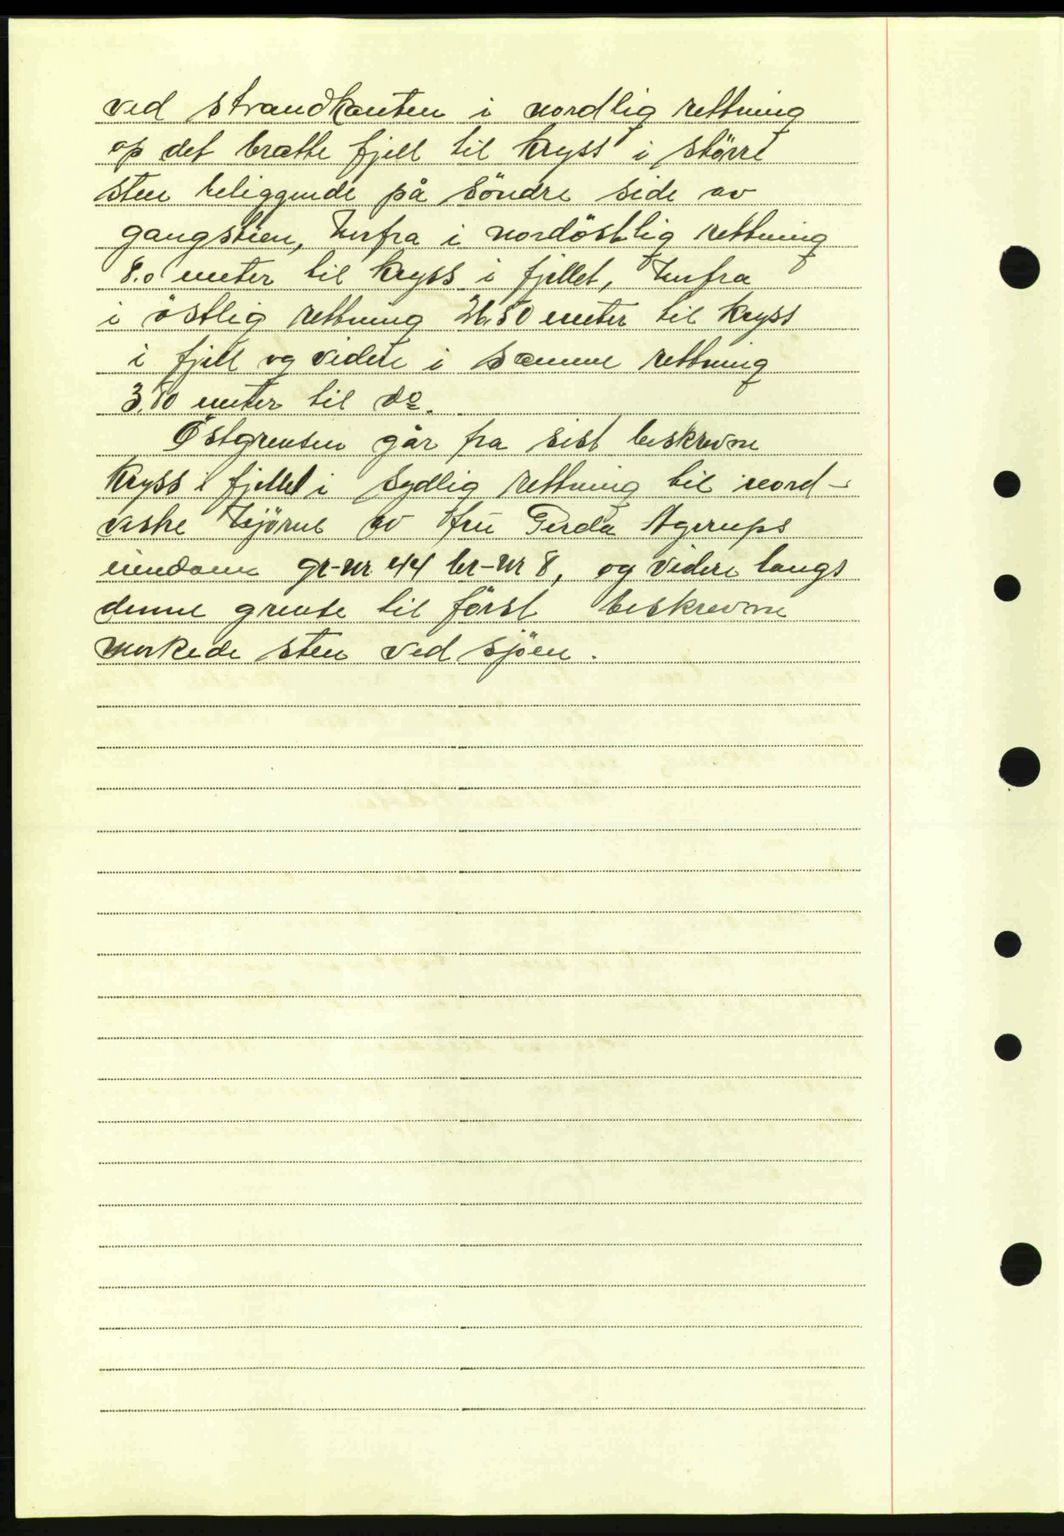 ved strandkanten i nordlig rettning
op det bratte fjell til kryss i större
sten beliggende på söndre side av
gangstien, herfra i nordöstlig rettning
8.0 meter til kryss i fjellet, herfra
i östlig rettning 26.50 meter til kryss
i fjell og videre i samme rettning
3.80 meter til do.
Östgrensen går fra sist beskrevne
kryss i fjellet i sydlig rettning til nord-
vestre hjörne av fru Gerda Agerups
eiendom gr-nr 44 br-nr 8, og videre langs
denne grense til först beskrevne
merkede sten ved sjöen.